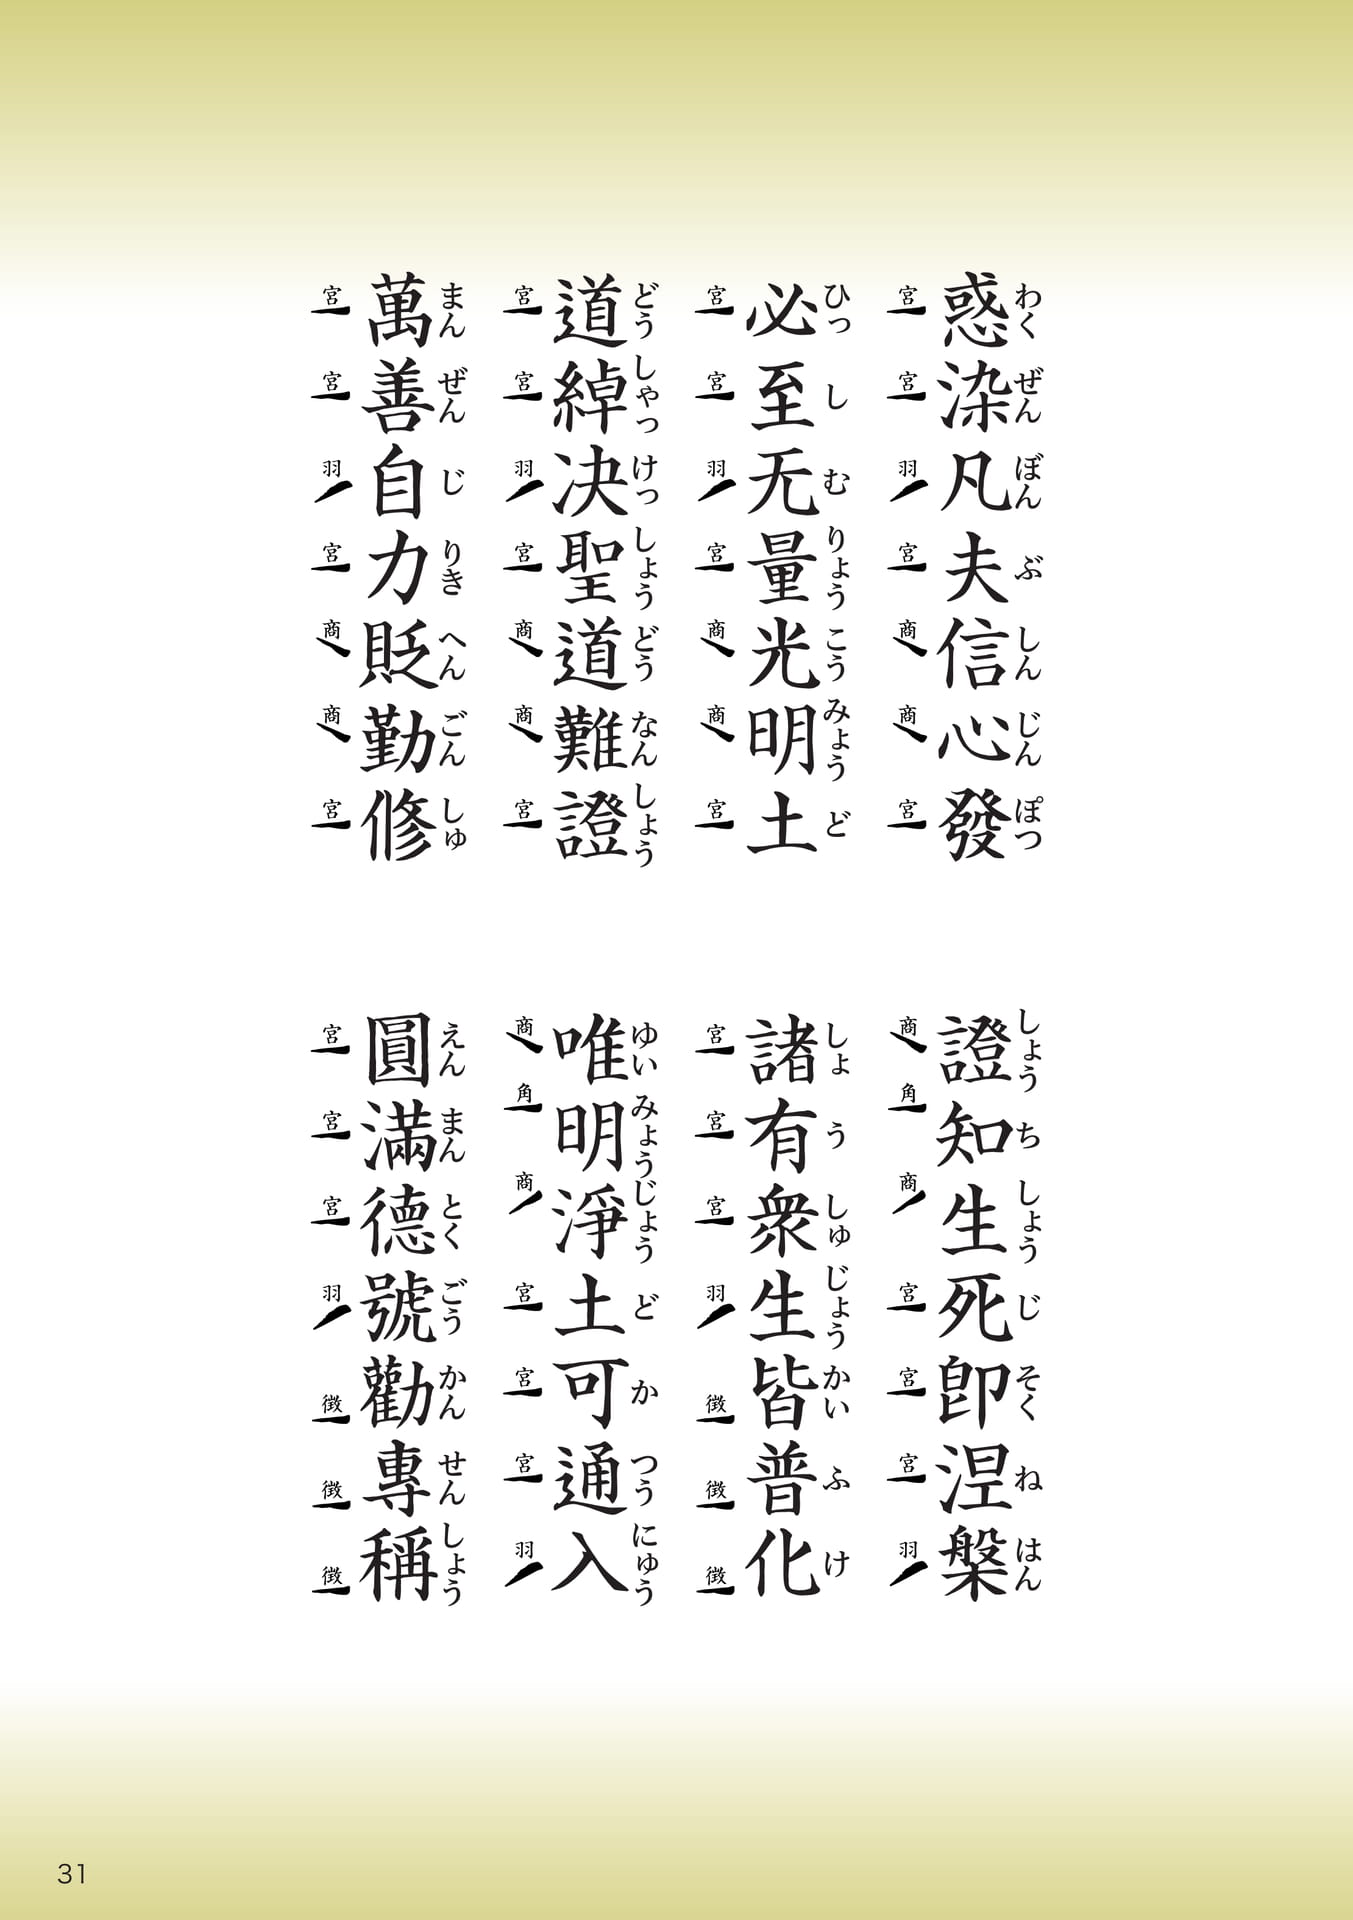 惑染凡夫信心發
わくぜんぼんぶしんじんぽつ
宮宮羽宮商商宮
證知生死卽涅槃
しょうちしょうじそくねはん
商角商宮宮宮羽
必至无量光明土
ひっしむりょうこうみょうど
宮宮羽宮商商宮
諸有衆生皆普化
しょうしゅじょうかいふけ
宮宮宮羽徴徴徴
道綽决聖道難證
どうしゃっけっしょうどうなんしょう
宮宮羽宮商商宮
唯明淨土可通入
ゆいみょうじょうどかつうにゅう
商角商宮宮宮羽
萬善自力貶勤修
まんぜんじりきへんごんしゅ
宮宮羽宮商商宮
圓滿德號勸專稱
えんまんとくごうかんせんしょう
宮宮宮羽徴徴徴
31